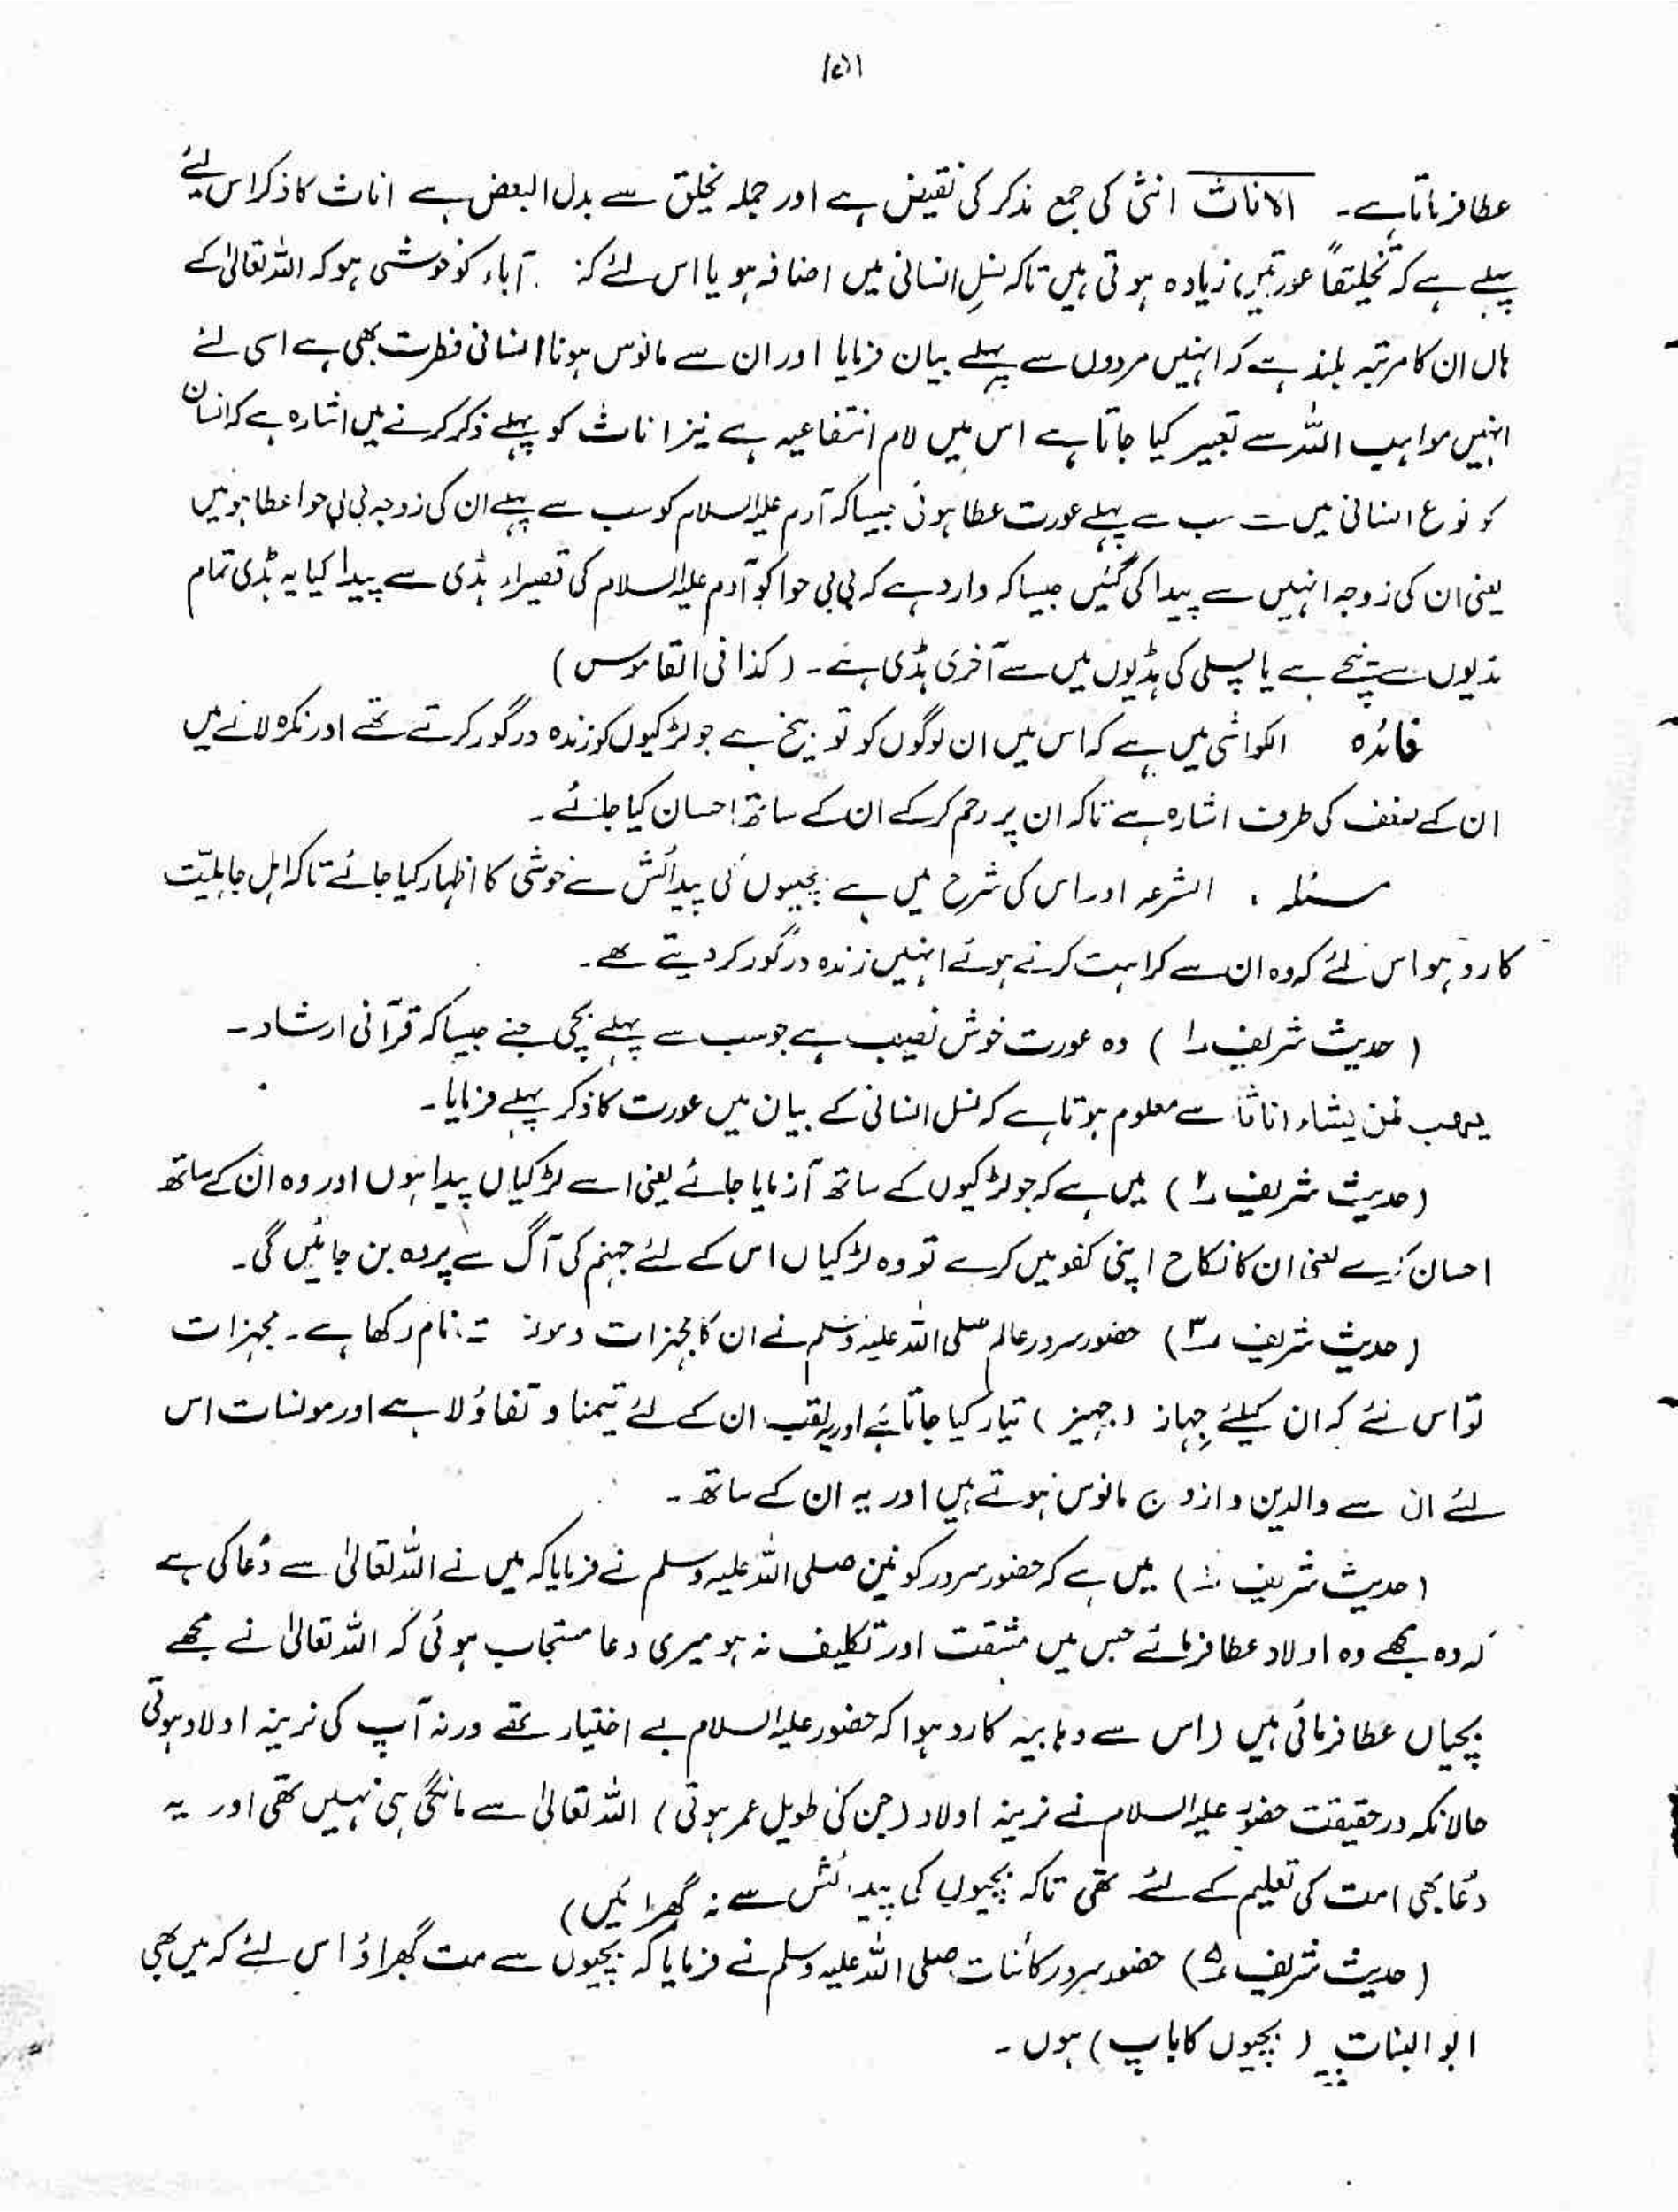 ۱۵۱
عطا فرماتا ہے۔ الاناث انثیٰ کی جمع مذکر کی نقیض ہے اور جملہ یخلق سے بدل البعض ہے اناث کا ذکر اس لیئے
پہلے ہے کہ تخلیقاً عورتیں زیادہ ہوتی ہیں تاکہ نسلِ انسانی میں اضافہ ہو یا اس لئے کہ آباء کو خوشی ہو کہ اللہ تعالیٰ کے
ہاں ان کا مرتبہ بلند ہے کہ انہیں مردوں سے پہلے بیان فرمایا اور ان سے مانوس ہونا انسانی فطرت بھی ہے اسی لئے
انہیں مواہب اللہ سے تعبیر کیا جاتا ہے اس میں لام انتفاعیہ ہے نیز اناث کو پہلے ذکر کرنے میں اشارہ ہے کہ انسان
کو نوع انسانی میں سے سب سے پہلے عورت عطا ہوئی جیسا کہ آدم علیہ السلام کو سب سے پہلے ان کی زوجہ بی بی حوا عطا ہوئیں
یعنی ان کی زوجہ انہیں سے پیدا کی گئیں جیسا کہ وارد ہے کہ بی بی حوا کو آدم علیہ السلام کی قصیراء ہڈی سے پیدا کیا یہ ہڈی تمام
ہڈیوں سے نیچے ہے یا پسلی کی ہڈیوں میں سے آخری ہڈی ہے۔ (کذا فی القاموس)
فائدہ الکواشی میں ہے کہ اس میں ان لوگوں کو توبیخ ہے جو لڑکیوں کو زندہ درگور کرتے تھے اور نکرہ لانے میں
ان کے ضعف کی طرف اشارہ ہے تاکہ ان پر رحم کر کے ان کے ساتھ احسان کیا جائے۔
مسئلہ ، الشرعہ اور اس کی شرح میں ہے بچیوں کی پیدائش سے خوشی کا اظہار کیا جائے تاکہ اہل جاہلیّت
کا رد ہو اس لئے کہ وہ ان سے کراہت کرتے ہوئے انہیں زندہ درگور کر دیتے تھے۔
(حدیث شریف ۱) وہ عورت خوش نصیب ہے جو سب سے پہلے بچی جنے جیسا کہ قرآنی ارشاد۔
یھب لمن یشاء اناثا سے معلوم ہوتا ہے کہ نسل انسانی کے بیان میں عورت کا ذکر پہلے فرمایا۔
(حدیث شریف ۲) میں ہے کہ جو لڑکیوں کے ساتھ آزمایا جائے یعنی اسے لڑکیاں پیدا ہوں اور وہ ان کے ساتھ
احسان کرے یعنی ان کا نکاح اپنی کفو میں کرے تو وہ لڑکیاں اس کے لئے جہنم کی آگ سے پردہ بن جائیں گی۔
(حدیث شریف ۳) حضور سرور عالم صلی اللہ علیہ وسلم نے ان کا مجہزات نام رکھا ہے۔ مجہزات
تو اس لئے کہ ان کیلئے جِہاز (جہیز) تیار کیا جاتا ہے اور یہ لقب ان کے لئے تیمنا و تفاؤلا ہے اور مونسات اس
لئے ان سے والدین و ازواج مانوس ہوتے ہیں اور یہ ان کے ساتھ۔
(حدیث شریف) میں ہے کہ حضور سرور کونین صلی اللہ علیہ وسلم نے فرمایا کہ میں نے اللہ تعالیٰ سے دُعا کی ہے
کہ وہ مجھے وہ اولاد عطا فرمائے جس میں مشقت اور تکلیف نہ ہو میری دعا مستجاب ہوئی کہ اللہ تعالیٰ نے مجھے
بچیاں عطا فرمائی ہیں (اس سے وہابیہ کا رد ہوا کہ حضور علیہ السلام بے اختیار تھے ورنہ آپ کی نرینہ اولاد ہوتی
حالانکہ درحقیقت حضور علیہ السلام نے نرینہ اولاد (جن کی طویل عمر ہوتی) اللہ تعالیٰ سے مانگی ہی نہیں تھی اور یہ
دُعا بھی امت کی تعلیم کے لئے تھی تاکہ بچیوں کی پیدائش سے نہ گھبرائیں)
(حدیث شریف ۵) حضور سرور کائنات صلی اللہ علیہ وسلم نے فرمایا کہ بچیوں سے مت گھبراؤ اس لئے کہ میں بھی
ابو البنات (بچیوں کا باپ) ہوں۔